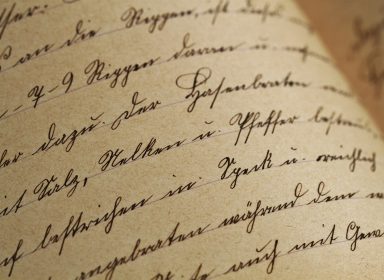 ther:
an die Rippen, ist dieses
- 7-9 Rippen daran u.
ler dazu. Der Hasenbraten
it Salz, Nelken u. Pfeffer bestreut,
f bestrichen in Speck u. reichlich
angebraten während dem
auch mit Gew